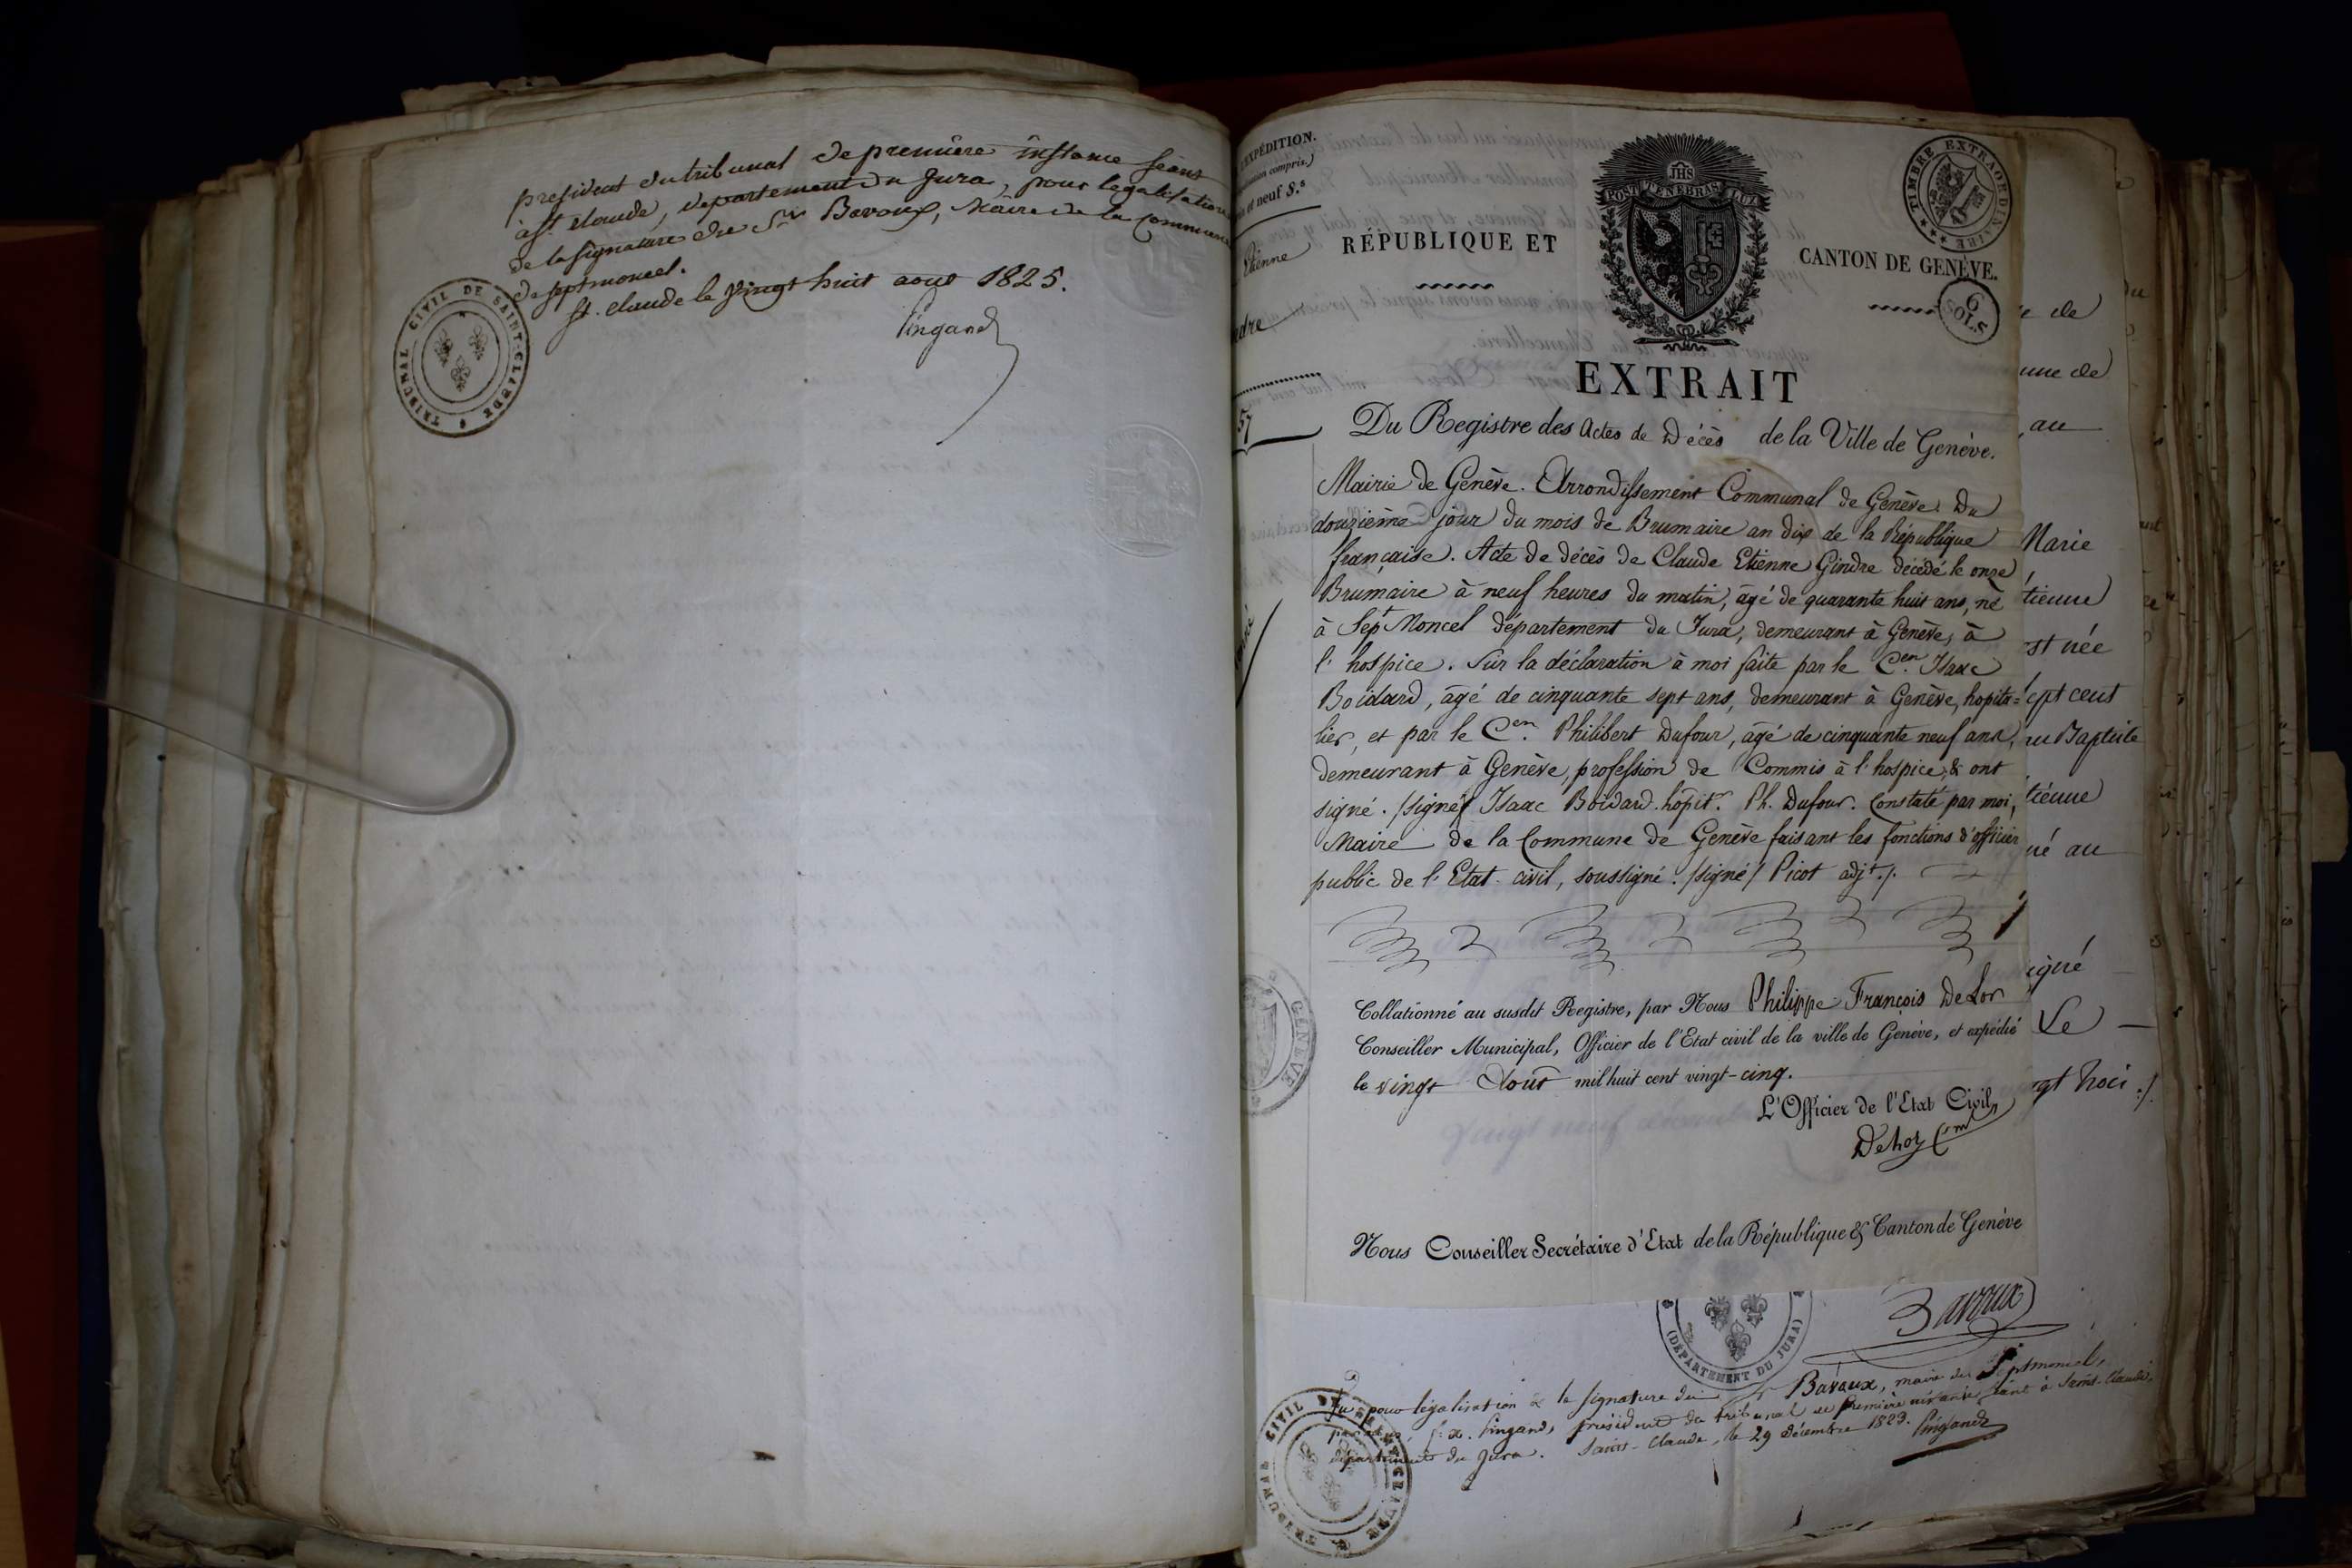 president du tribunal de première instance séant
à St. claude, departement du Jura, pour legalisation
de la signature du Sr Bavoux, Maire de la commune
de septmoncel.
St. claude le vingt huit aout 1825.
Pingand
TRIBUNAL CIVIL DE SAINT-CLAUDE
EXPÉDITION.
compris.)
et neuf S.s
Etienne
57
RÉPUBLIQUE ET
JHS
POST TENEBRAS LUX
CANTON DE GENÈVE.
TIMBRE EXTRAORDINAIRE
6 SOLS
EXTRAIT
Du Registre des Actes de Décès de la Ville de Genève.
Mairie de Genève. Arrondissement Communal de Genève. Du
douzième jour du mois de Brumaire an dix de la République
française. Acte de décès de Claude Etienne Gindre décédé le onze
Brumaire à neuf heures du matin, âgé de quarante huit ans, né
à Sept Moncel département du Jura, demeurant à Genève, à
l'hospice. Sur la déclaration à moi faite par le Cen. Isaac
Boidard, âgé de cinquante sept ans, demeurant à Genève, hopita=
lier, et par le Cen. Philibert Dufour, âgé de cinquante neuf ans,
demeurant à Genève, profession de Commis à l'hospice, & ont
signé. /signé/ Isaac Boidard. hôpitr. Ph. Dufour. Constaté par moi,
Maire de la Commune de Genève faisant les fonctions d'officier
public de l'Etat civil, soussigné. /signé/ Picot adjt./.
Collationné au susdit Registre, par Nous Philippe François DeLor
Conseiller Municipal, Officier de l'Etat civil de la ville de Genève, et expédié
le vingt Aout mil huit cent vingt-cinq.
L'Officier de l'Etat Civil,
GENÈVE
Nous Conseiller Secrétaire d'Etat de la République & Canton de Genève
de
une de
au
Marie
tienne
st née
ept cent
Baptiste
tienne
né au
igné
Le
(DÉPARTEMENT DU JURA)
Bavoux
Vu pour légalisation de la signature du Sr Bavoux, maire de Septmoncel,
par nous, f. x. Pingand, président du tribunal de première instance séant à Saint-Claude,
département du Jura. Saint-Claude, le 29 décembre 1823. Pingand
TRIBUNAL CIVIL DE SAINT-CLAUDE